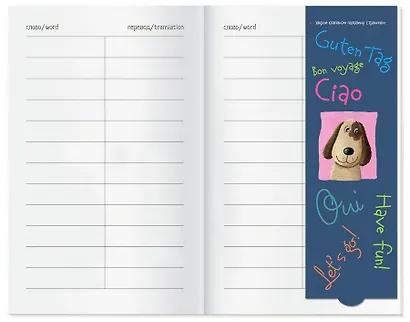 слово/word
перевод/translation
слово/word
Guten Tag
Bon voyage
Ciao
Oui
Have fun!
Let's go!